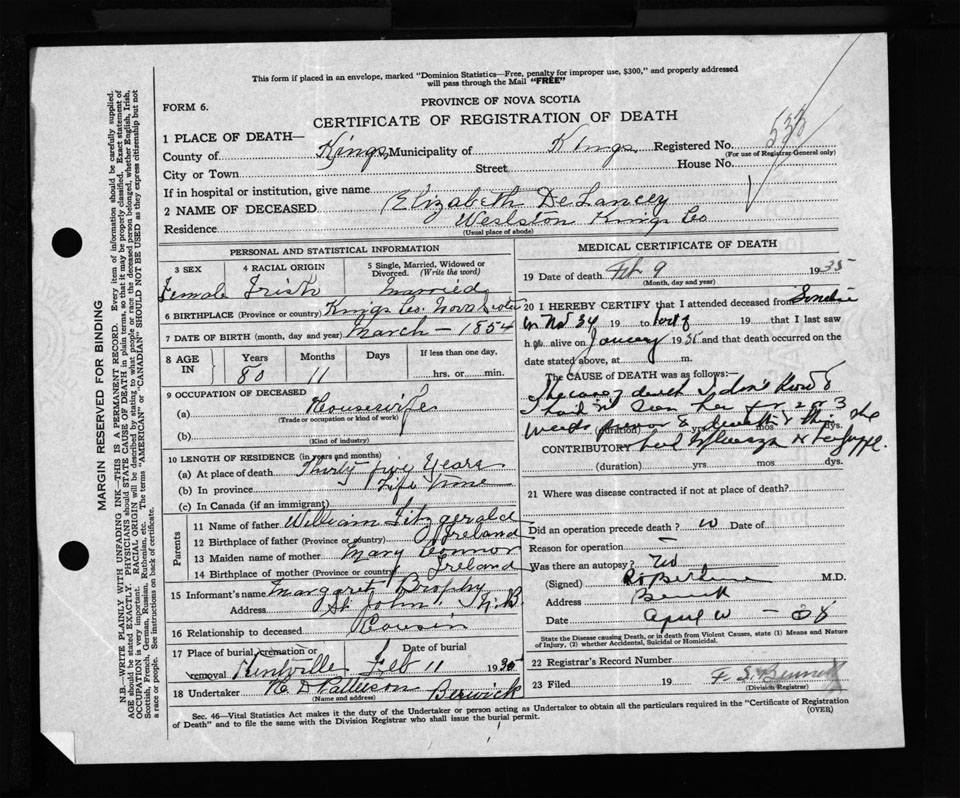 This form if placed in an envelope, marked "Dominion Statistics—Free, penalty for improper use, $300," and properly addressed
will pass through the Mail "FREE"
FORM 6.
PROVINCE OF NOVA SCOTIA
CERTIFICATE OF REGISTRATION OF DEATH
1 PLACE OF DEATH—
County of Kings Municipality of Kings Registered No.
(For use of Registrar General only)
City or Town Street House No.
If in hospital or institution, give name
2 NAME OF DECEASED Elizabeth DeLancey
Residence Kings Co
(Usual place of abode)
PERSONAL AND STATISTICAL INFORMATION
3 SEX 4 RACIAL ORIGIN 5 Single, Married, Widowed or
Divorced. (Write the word)
Female Irish Married
6 BIRTHPLACE (Province or country) Kings Co. Nova Scotia
7 DATE OF BIRTH (month, day and year) March — 1854
8 AGE IN Years Months Days If less than one day,
80 11 hrs. or min.
9 OCCUPATION OF DECEASED
(a) Housewife
(Trade or occupation or kind of work)
(b)
(Kind of industry)
10 LENGTH OF RESIDENCE (in years and months)
(a) At place of death Thirty five Years
(b) In province Life time
(c) In Canada (if an immigrant)
Parents
11 Name of father William Fitzgerald
12 Birthplace of father (Province or country) Ireland
13 Maiden name of mother Mary Connor
14 Birthplace of mother (Province or country) Ireland
15 Informant's name Margaret Brophy
Address St John, N.B.
16 Relationship to deceased Cousin
17 Place of burial, cremation or Date of burial
removal Kentville Feb 11 1935
18 Undertaker Patterson Berwick
(Name and address)
MEDICAL CERTIFICATE OF DEATH
19 Date of death Feb 9 1935
(Month, day and year)
20 I HEREBY CERTIFY that I attended deceased from
in Nov 34 19 to 19 that I last saw
h alive on January 19 and that death occurred on the
date stated above, at m.
The CAUSE of DEATH was as follows:—
The cause of death I don't know
I had not seen her for 2 or 3
weeks (duration) yrs. mos. dys.
CONTRIBUTORY
(duration) yrs. mos. dys.
21 Where was disease contracted if not at place of death?
Did an operation precede death? Date of
Reason for operation —
Was there an autopsy? No
(Signed) M.D.
Address
Date April
State the Disease causing Death, or in death from Violent Causes, state (1) Means and Nature
of Injury, (2) whether Accidental, Suicidal or Homicidal.
22 Registrar's Record Number
23 Filed 19
(Division Registrar)
Sec. 46—Vital Statistics Act makes it the duty of the Undertaker or person acting as Undertaker to obtain all the particulars required in the "Certificate of Registration
of Death" and to file the same with the Division Registrar who shall issue the burial permit.
(OVER)
MARGIN RESERVED FOR BINDING
N.B.—WRITE PLAINLY WITH UNFADING INK—THIS IS A PERMANENT RECORD. Every item of information should be carefully supplied.
AGE should be stated EXACTLY. PHYSICIANS should STATE CAUSE OF DEATH in plain terms, so that it may be properly classified. Exact statement of
OCCUPATION is very important. RACIAL ORIGIN will be described by stating to what people or race the deceased person belonged, whether English, Irish,
Scottish, French, German, Russian, Ruthenian, etc. The terms "AMERICAN" or "CANADIAN" SHOULD NOT BE USED as they express citizenship but not
a race or people. See instructions on back of certificate.